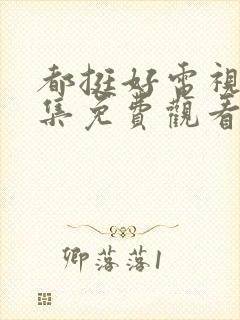 都挺好電視
集免費觀看
卿落落1